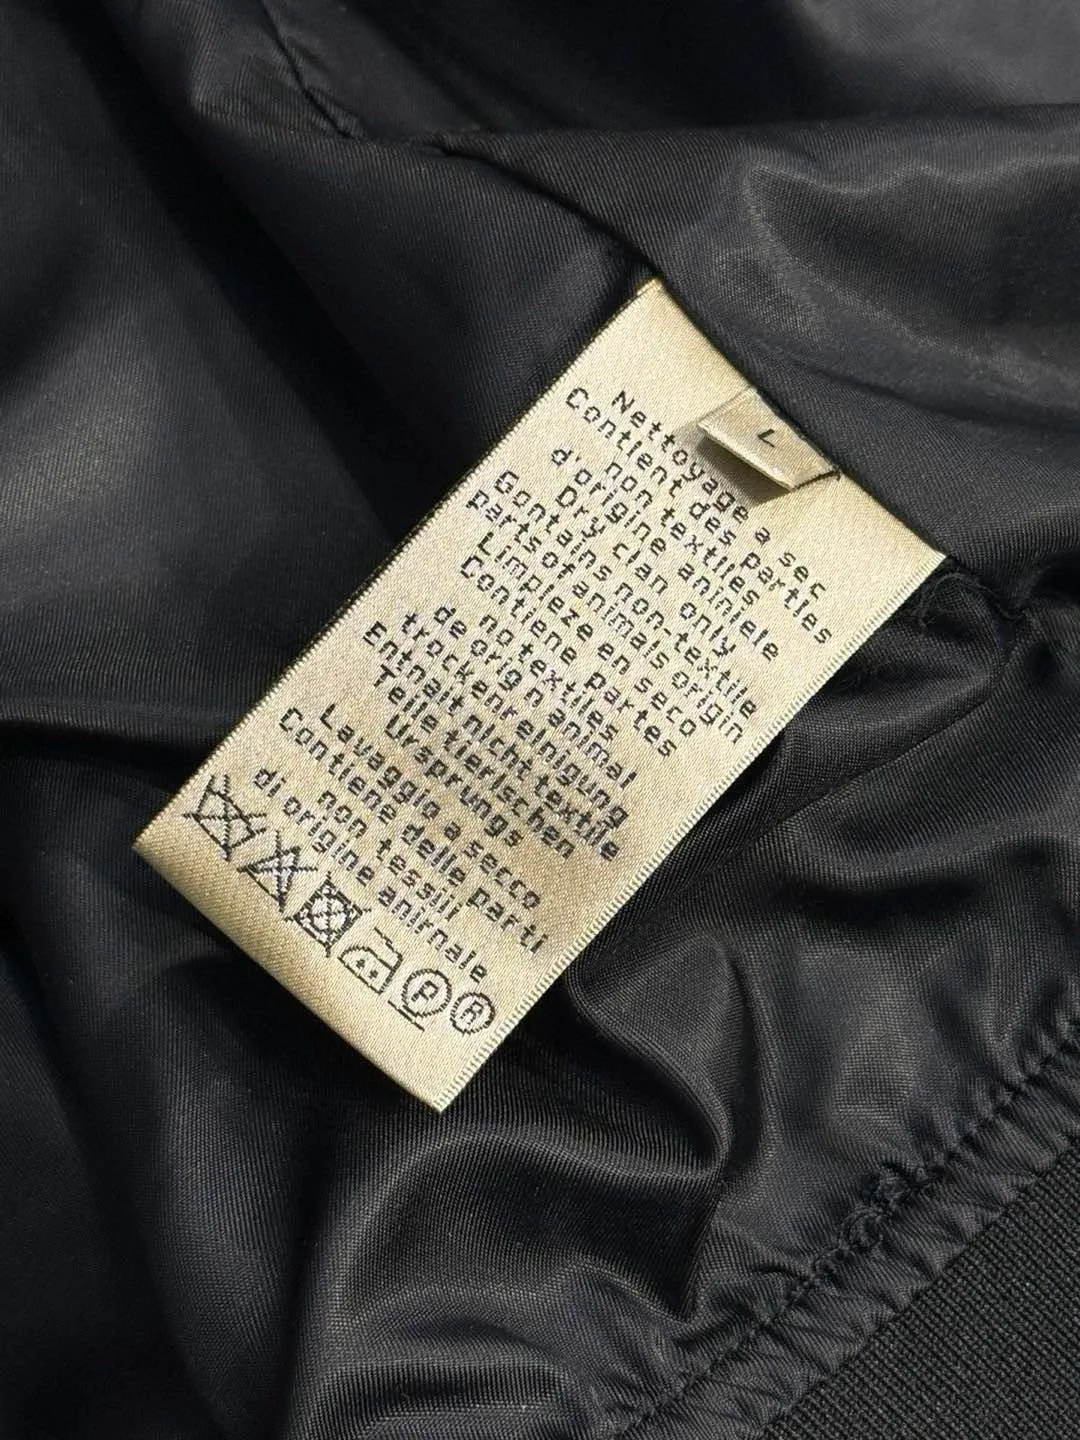 L
Nettoyage a sec
Contient des parties
non textiles
d'origine aniniele
Dry clan only
Gontains non-textile
partsofanimals origin
Limpieze en seco
Contiene partes
no textiles
de orign animal
trockenreinigung
Entnait nicht textile
Teile tierischen
Ursprungs
Lavaggio a secco
Contiene delle parti
non tessili
di origine anirnale
P R